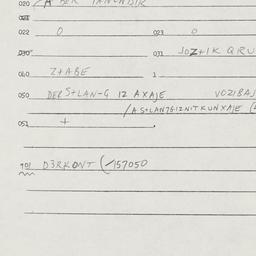 020
021
022 0 023 0
030 031 JOZ+IK QRU
040 Z+ABE 1
050 DER S+LAN-G IZ AXAJE VOZIBAJ
/A S+LAN7G1ZNITKUNXAJE
051 +
901 D3RKONT (/157050